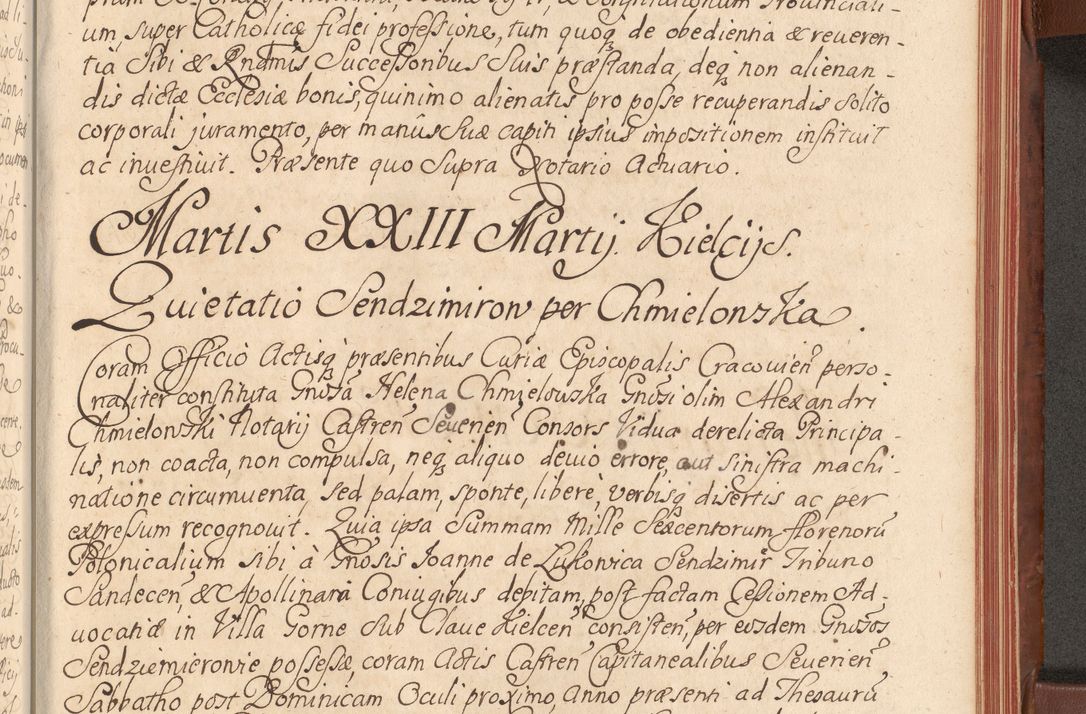 um, super Catholicæ fidei professione, tum quoq de obedientia & reueren-
tia Sibi & Rndmis Successoribus Suis præstanda, deq non alienan-
dis dictæ Ecclesiæ bonis, quinimo alienatis pro posse recuperandis solito
corporali juramento, per manûs Suæ capiti ipsius impositionem instituit
ac inuestiuit. Præsente quo Supra Notario Actuario.
Martis XXIII Martij. Kielcijs.
Quietatio Sendzimirow per Chmielowska.
Coram Officio Actisq præsentibus Curiæ Episcopalis Cracouien perso-
naliter constituta Gnosa Helena Chmielowska Gnosi olim Alexandri
Chmielowski Notarij Castren Seuerien Consors Vidua derelicta Principa-
lis, non coacta, non compulsa, neq aliquo deuio errore, aut sinistra machi-
natione circumuenta, sed palam, sponte, libere, verbisq disertis ac per
expressum recognouit. Quia ipsa Summam Mille Sexcentorum florenorũ
Polonicalium sibi à Gnosis Joanne de Lukowica Sendzimir Tribuno
Sandecen, & Apollinara Coniugibus debitam, post factam Cessionem Ad-
uocatiæ in Villa Gorne sub Claue Kielcen consisten, per eosdem Gnosos
Sendziemierowie possessæ, coram Actis Castren Capitanealibus Seuerien,
Sabbatho post Dominicam Oculi proximo, Anno præsenti ad Thesaurũ